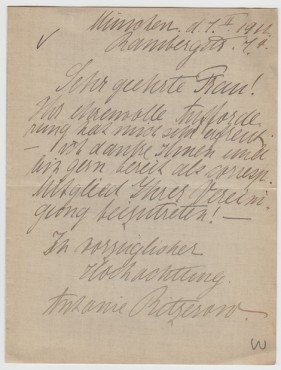 München. d. 7. II 1911.
Rambergstr. 7.
Sehr geehrte Frau!
Ihr ehrenvolle Auffforde
rung hat mich sehr erfreut -
- ich danke Ihnen und
bin gern bereit als corresp.
Mitglied Ihrer Vereini-
gung beizutreten! -
In vorzüglicher
Hochachtung.
Antonie Ritzerow.